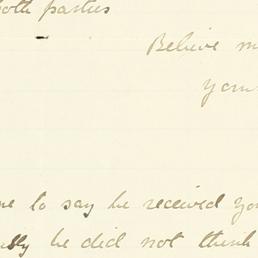 both parties
Believe m
you
me to say he received yo
he did not think